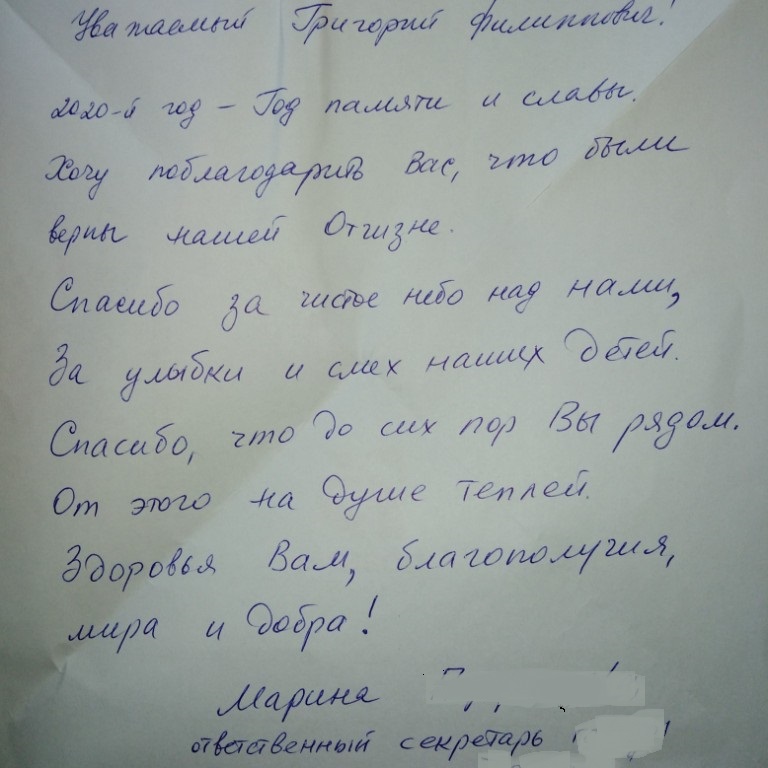 Уважаемый Григорий Филиппович!
2020-й год - Год памяти и славы.
Хочу поблагодарить Вас, что были
верны нашей Отчизне.
Спасибо за чистое небо над нами,
За улыбки и смех наших детей.
Спасибо, что до сих пор Вы рядом.
От этого на душе теплей.
Здоровья Вам, благополучия,
мира и добра!
Марина
ответственный секретарь